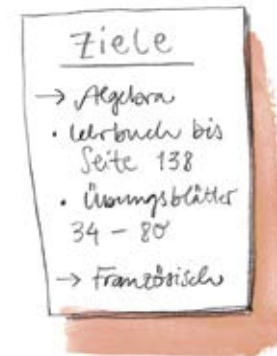 Ziele
→ Algebra
• Lehrbuch bis
Seite 138
• Übungsblätter
34 – 80
→ Französisch